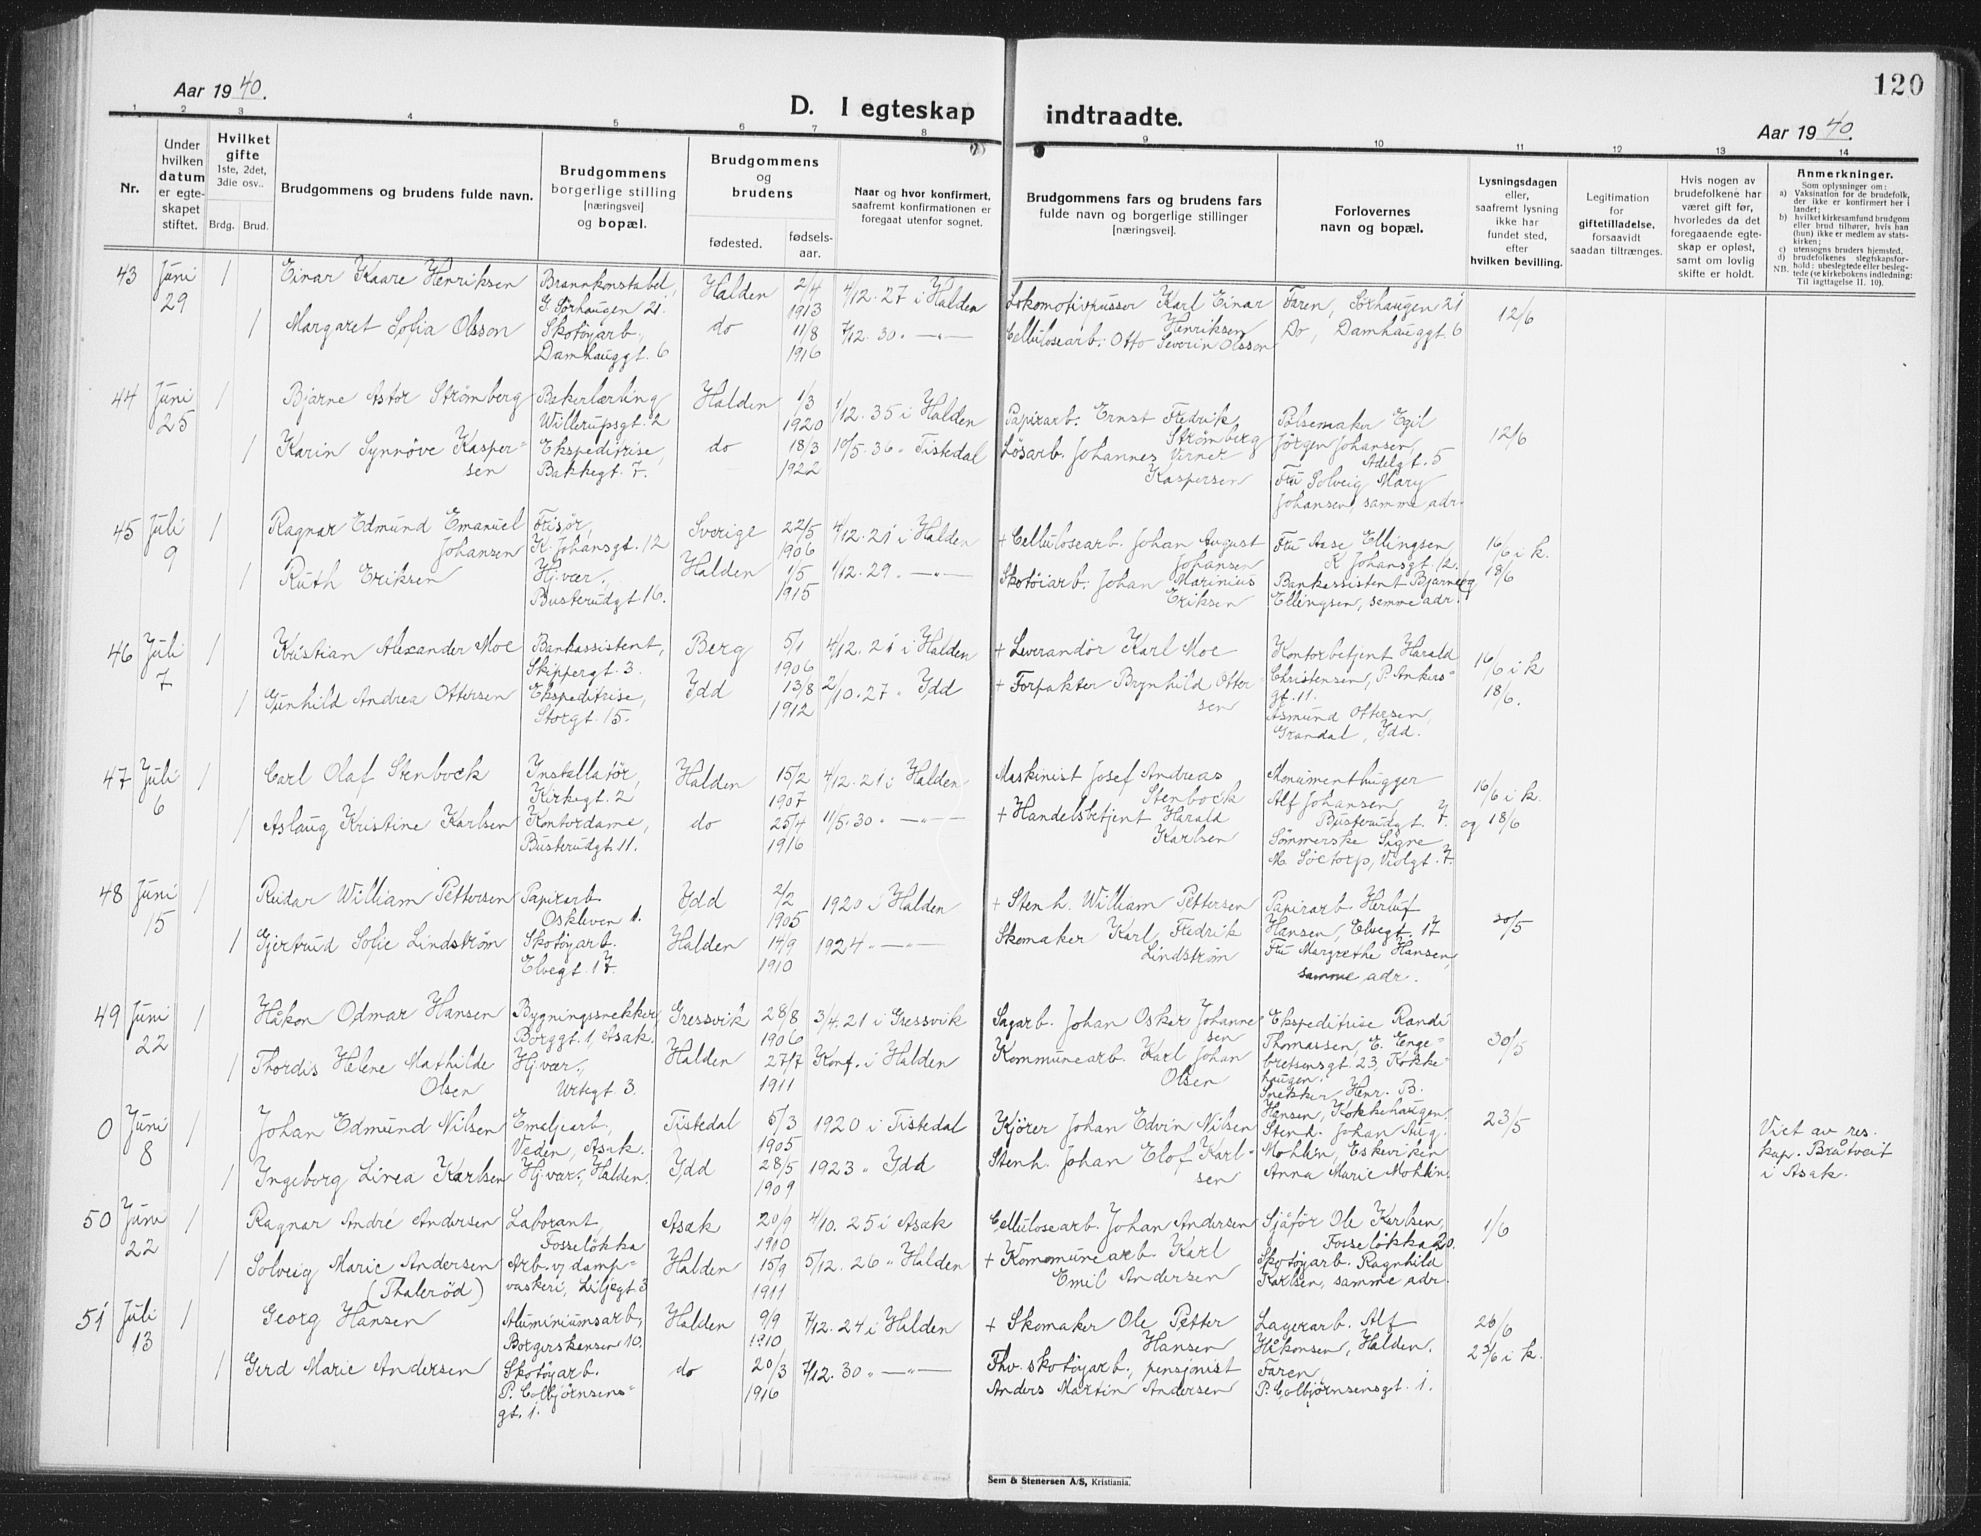 120
Aar 1940.
D. I egteskap indtraadte.
Aar 1940.
1 2 3 4 5 6 7 8 9 10 11 12 13 14
Nr.
Under hvilken datum er egteskapet stiftet.
Hvilket gifte
1ste, 2det, 3die osv..
Brdg. Brud.
Brudgommens og brudens fulde navn.
Brudgommens borgerlige stilling [næringsvei] og bopæl.
Brudgommens og brudens
fødested. fødselsaar.
Naar og hvor konfirmert, saafremt konfirmationen er foregaat utenfor sognet.
Brudgommens fars og brudens fars fulde navn og borgerlige stillinger [næringsvei].
Forlovernes navn og bopæl.
Lysningsdagen eller, saafremt lysning ikke har fundet sted, efter hvilken bevilling.
Legitimation for giftetilladelse, forsaavidt saadan tiltrænges.
Hvis nogen av brudefolkene har været gift før, hvorledes da det foregaaende egteskap er opløst, samt om lovlig skifte er holdt.
Anmerkninger.
Som oplysninger om:
a) Vaksination for de brudefolk, der ikke er konfirmert her i landet;
b) hvilket kirkesamfund brudgom eller brud tilhører, hvis han (hun) ikke er medlem av statskirken;
c) utensogns bruders hjemsted.
d) brudefolkenes slegtskapsforhold: ubeslegtede eller beslegtede (se kirkebokens indledning:
NB. Til iagttagelse II. 10).
43 Juni 29 1 Einar Kaare Henriksen Brannkonstabel, G. Sörhaugen 21. Halden 2/4 1913 4/12.27 i Halden Lokomotivpusser Karl Einar Henriksen Faren, Sörhaugen 21 12/6
1 Margaret Sofia Olsson Skotöyarb., Damhauggt. 6 do 11/8 1916 7/12.30 " —"— Cellulosearb. Otto Severin Olsson Do, Damhauggt. 6
44 Juni 25 1 Bjarne Astor Strømberg Bakerlærling Willerupsgt. 2 Halden 1/3 1920 1/12.35 i Halden Papirarb. Ernst Fredrik Strømberg Pölsemaker Egil Jörgen Johansen, Adelgt. 5 12/6
1 Karin Synnöve Kaspersen Ekspeditrise, Bakkegt. 7. do 18/3 1922 10/5.36 " Tistedal Lösarb. Johannes Verner Kaspersen Fru Solveig Mary Johansen, samme adr.
45 Juli 9 1 Ragnar Edmund Emanuel Johansen Frisör, K. Johansgt. 12 Sverige 22/5 1906 4/12.21 i Halden + Cellulosearb. Johan August Johansen Fru Aase Ellingsen K Johansgt. 12. 16/6 i k. og 18/6
1 Ruth Eriksen Hj.vær., Busterudgt. 16. Halden 1/5 1915 1/12.29 " —"— Skotöiarb. Johan Marinius Eriksen Bankassistent Bjarne Ellingsen, samme adr.
46 Juli 7 1 Kristian Alexander Moe Bankassistent, Skippergt. 3. Berg 5/1 1906 4/12.21 i Halden + Leverandör Karl Moe Kontorbetjent Harald Christensen, P. Ankersgt. 11. 16/6 i k 18/6.
1 Gunhild Andrea Ottersen Ekspeditrise, Storgt. 15. Ydd 13/8 1912 2/10.27 " Ydd + Forpakter Brynhild Ottersen Asmund Ottersen, Grandal, Ydd.
47 Juli 6 1 Carl Olaf Stenbock Installatör, Kirkegt. 2 Halden 15/2 1907 4/12.21 i Halden Maskinist Josef Andreas Stenbock Monumenthugger Alf Johansen Busterudgt. 7. 16/6 i k. og 18/6
1 Aslaug Kristine Karlsen Kontordame, Busterudgt. 11. do 25/4 1916 11/5.30 " —"— + Handelsbetjent Harald Karlsen Sömmerske Signe M. Söetorp, Violgt. 7.
48 Juni 15 1 Reidar William Pettersen Papirarb. Oskleven 1. Ydd 2/2 1905 1920 i Halden + Stenh. William Pettersen Papirarb. Herluf Hansen, Elvegt. 17 30/5
1 Gjertrud Sofie Lindstrøm Skotöyarb. Elvegt. 17. Halden 14/9 1910 1924 " —"— Skomaker Karl Fredrik Lindstrøm Fru Margrethe Hansen, samme adr.
49 Juni 22 1 Håkon Odmar Hansen Bygningssnekker Borggt. 1, Asak. Gressvik 28/8 1906 3/4.21 i Gressvik Sagarb. Johan Oskar Johannesen Ekspeditrise Randi Thomassen, E. Engebretsensgt. 23, Kokkehaugen. 30/5
1 Thordis Helene Mathilde Olsen Hj.vær., Urtegt 3. Halden 27/7 1911 Konf. i Halden Kommunearb. Karl Johan Olsen Snekker Henr. B. Hansen, Kokkehaugen.
0 Juni 8 1 Johan Edmund Nilsen Emeljearb., Veden, Asak. Tistedal 5/3 1905 1920 i Tistedal Kjörer Johan Edvin Nilsen Stenh. Johan Aug. Mohlin, Eskeviken 23/5 Viet av res. kap. Bråtveit i Asak.
1 Ingeborg Linea Karlsen Hj.vær., Halden. Ydd 28/5 1909 1923 " Ydd Stenh. Johan Elof Karlsen Anna Marie Mohlin.
50 Juni 22 1 Ragnar André Andersen Laborant, Fosselökka Asak 20/9 1910 4/10.25 i Asak Cellulosearb. Johan Andersen Sjåför Ole Karlsen, Fosselökka 20. 1/6
1 Solveig Marie Andersen (Thaleröd) Arb. v/ dampvaskeri, Liljegt 3 Halden 15/9 1911 5/12.26 " Halden + Kommunearb. Karl Emil Andersen Skotöyarb. Ragnhild Karlsen, samme adr.
51 Juli 13 1 Georg Hansen Aluminiumsarb., Borgerskansen 10. Halden 9/9 1910 7/12.24 i Halden + Skomaker Ole Petter Hansen Lagerarb. Alf Håkonsen, Halden. 26/6 23/6 i k.
1 Gerd Marie Andersen Skotöyarb. P. Colbjørnsensgt. 1. do 20/3 1916 7/12.30 " —"— Fhv. skotöyarb., pensjonist Anders Martin Andersen Faren, P. Colbjørnsensgt. 1.
Sem & Stenersen A/S, Kristiania.